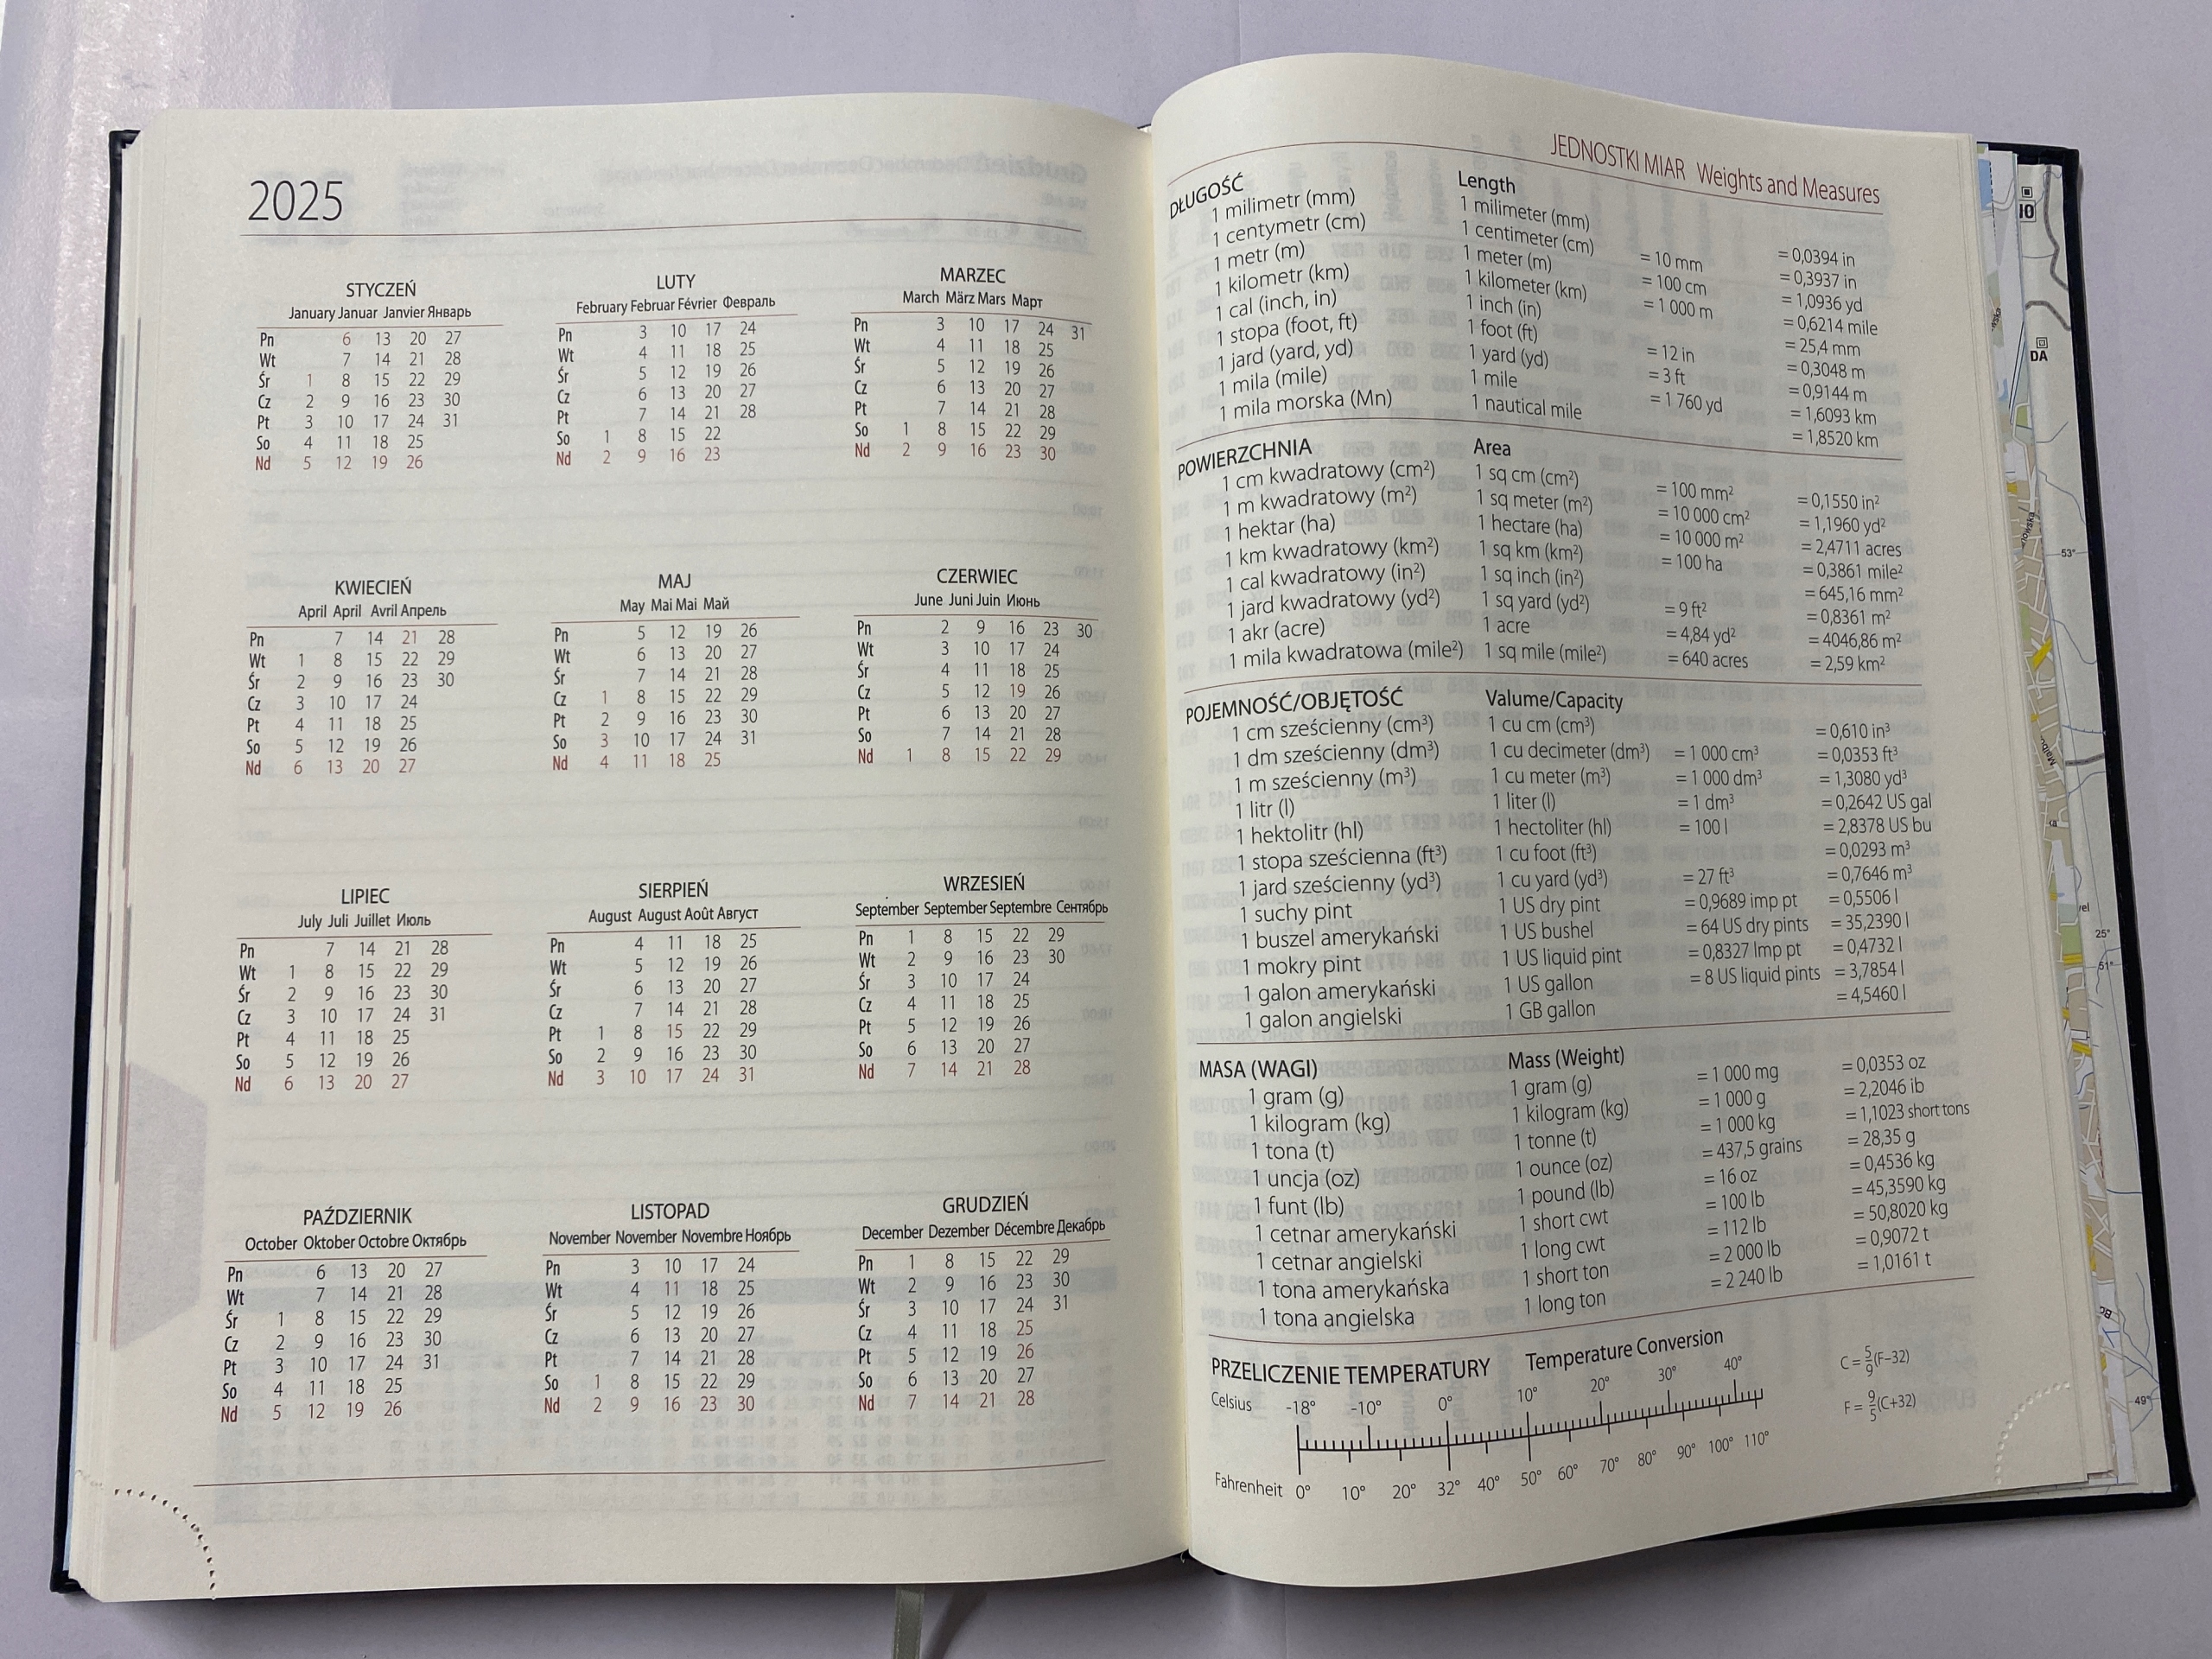 2025
STYCZEŃ
January Januar Janvier Январь
Pn 6 13 20 27
Wt 7 14 21 28
Śr 1 8 15 22 29
Cz 2 9 16 23 30
Pt 3 10 17 24 31
So 4 11 18 25
Nd 5 12 19 26
LUTY
February Februar Février Февраль
Pn 3 10 17 24
Wt 4 11 18 25
Śr 5 12 19 26
Cz 6 13 20 27
Pt 7 14 21 28
So 1 8 15 22
Nd 2 9 16 23
MARZEC
March März Mars Март
Pn 3 10 17 24 31
Wt 4 11 18 25
Śr 5 12 19 26
Cz 6 13 20 27
Pt 7 14 21 28
So 1 8 15 22 29
Nd 2 9 16 23 30
KWIECIEŃ
April April Avril Апрель
Pn 7 14 21 28
Wt 1 8 15 22 29
Śr 2 9 16 23 30
Cz 3 10 17 24
Pt 4 11 18 25
So 5 12 19 26
Nd 6 13 20 27
MAJ
May Mai Mai Май
Pn 5 12 19 26
Wt 6 13 20 27
Śr 7 14 21 28
Cz 1 8 15 22 29
Pt 2 9 16 23 30
So 3 10 17 24 31
Nd 4 11 18 25
CZERWIEC
June Juni Juin Июнь
Pn 2 9 16 23 30
Wt 3 10 17 24
Śr 4 11 18 25
Cz 5 12 19 26
Pt 6 13 20 27
So 7 14 21 28
Nd 1 8 15 22 29
LIPIEC
July Juli Juillet Июль
Pn 7 14 21 28
Wt 1 8 15 22 29
Śr 2 9 16 23 30
Cz 3 10 17 24 31
Pt 4 11 18 25
So 5 12 19 26
Nd 6 13 20 27
SIERPIEŃ
August August Août Август
Pn 4 11 18 25
Wt 5 12 19 26
Śr 6 13 20 27
Cz 7 14 21 28
Pt 1 8 15 22 29
So 2 9 16 23 30
Nd 3 10 17 24 31
WRZESIEŃ
September September Septembre Сентябрь
Pn 1 8 15 22 29
Wt 2 9 16 23 30
Śr 3 10 17 24
Cz 4 11 18 25
Pt 5 12 19 26
So 6 13 20 27
Nd 7 14 21 28
PAŹDZIERNIK
October Oktober Octobre Октябрь
Pn 6 13 20 27
Wt 7 14 21 28
Śr 1 8 15 22 29
Cz 2 9 16 23 30
Pt 3 10 17 24 31
So 4 11 18 25
Nd 5 12 19 26
LISTOPAD
November November Novembre Ноябрь
Pn 3 10 17 24
Wt 4 11 18 25
Śr 5 12 19 26
Cz 6 13 20 27
Pt 7 14 21 28
So 1 8 15 22 29
Nd 2 9 16 23 30
GRUDZIEŃ
December Dezember Décembre Декабрь
Pn 1 8 15 22 29
Wt 2 9 16 23 30
Śr 3 10 17 24 31
Cz 4 11 18 25
Pt 5 12 19 26
So 6 13 20 27
Nd 7 14 21 28
JEDNOSTKI MIAR Weights and Measures
DŁUGOŚĆ Length
1 milimetr (mm) 1 milimeter (mm) = 0,0394 in
1 centymetr (cm) 1 centimeter (cm) = 10 mm = 0,3937 in
1 metr (m) 1 meter (m) = 100 cm = 1,0936 yd
1 kilometr (km) 1 kilometer (km) = 1 000 m = 0,6214 mile
1 cal (inch, in) 1 inch (in) = 25,4 mm
1 stopa (foot, ft) 1 foot (ft) = 12 in = 0,3048 m
1 jard (yard, yd) 1 yard (yd) = 3 ft = 0,9144 m
1 mila (mile) 1 mile = 1 760 yd = 1,6093 km
1 mila morska (Mn) 1 nautical mile = 1,8520 km
POWIERZCHNIA Area
1 cm kwadratowy (cm²) 1 sq cm (cm²) = 100 mm² = 0,1550 in²
1 m kwadratowy (m²) 1 sq meter (m²) = 10 000 cm² = 1,1960 yd²
1 hektar (ha) 1 hectare (ha) = 10 000 m² = 2,4711 acres
1 km kwadratowy (km²) 1 sq km (km²) = 100 ha = 0,3861 mile²
1 cal kwadratowy (in²) 1 sq inch (in²) = 645,16 mm²
1 jard kwadratowy (yd²) 1 sq yard (yd²) = 9 ft² = 0,8361 m²
1 akr (acre) 1 acre = 4,84 yd² = 4046,86 m²
1 mila kwadratowa (mile²) 1 sq mile (mile²) = 640 acres = 2,59 km²
POJEMNOŚĆ/OBJĘTOŚĆ Valume/Capacity
1 cm sześcienny (cm³) 1 cu cm (cm³) = 0,610 in³
1 dm sześcienny (dm³) 1 cu decimeter (dm³) = 1 000 cm³ = 0,0353 ft³
1 m sześcienny (m³) 1 cu meter (m³) = 1 000 dm³ = 1,3080 yd³
1 litr (l) 1 liter (l) = 1 dm³ = 0,2642 US gal
1 hektolitr (hl) 1 hectoliter (hl) = 100 l = 2,8378 US bu
1 stopa sześcienna (ft³) 1 cu foot (ft³) = 0,0293 m³
1 jard sześcienny (yd³) 1 cu yard (yd³) = 27 ft³ = 0,7646 m³
1 suchy pint 1 US dry pint = 0,9689 imp pt = 0,5506 l
1 buszel amerykański 1 US bushel = 64 US dry pints = 35,2390 l
1 mokry pint 1 US liquid pint = 0,8327 Imp pt = 0,4732 l
1 galon amerykański 1 US gallon = 8 US liquid pints = 3,7854 l
1 galon angielski 1 GB gallon = 4,5460 l
MASA (WAGI) Mass (Weight)
1 gram (g) 1 gram (g) = 1 000 mg = 0,0353 oz
1 kilogram (kg) 1 kilogram (kg) = 1 000 g = 2,2046 ib
1 tona (t) 1 tonne (t) = 1 000 kg = 1,1023 short tons
1 uncja (oz) 1 ounce (oz) = 437,5 grains = 28,35 g
1 funt (lb) 1 pound (lb) = 16 oz = 0,4536 kg
1 cetnar amerykański 1 short cwt = 100 lb = 45,3590 kg
1 cetnar angielski 1 long cwt = 112 lb = 50,8020 kg
1 tona amerykańska 1 short ton = 2 000 lb = 0,9072 t
1 tona angielska 1 long ton = 2 240 lb = 1,0161 t
PRZELICZENIE TEMPERATURY Temperature Conversion
Celsius -18° -10° 0° 10° 20° 30° 40°
C = 5/9 (F−32)
F = 9/5 (C+32)
Fahrenheit 0° 10° 20° 32° 40° 50° 60° 70° 80° 90° 100° 110°
IO
DA
53°
25°
51°
49°